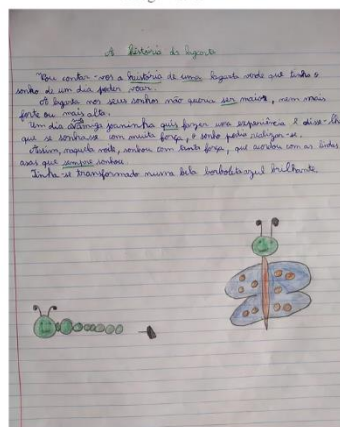 A história da lagarta
Vou contar-vos a história de uma lagarta verde que tinha o
sonho de um dia poder voar.
A lagarta nos seus sonhos não queria ser maior, nem mais
forte ou mais alta.
Um dia a amiga joaninha quis fazer uma experiência e disse-lh
que se sonhasse com muita força, o sonho podia realizar-se.
Assim, naquela noite, sonhou com tanta força, que acordou com as lindas
asas que sempre sonhou.
Tinha-se transformado numa bela borboleta azul brilhante.